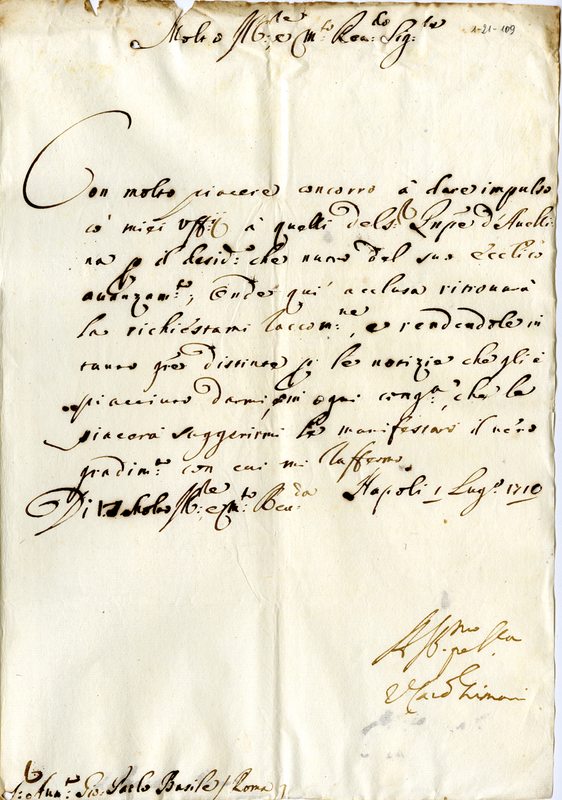 Molto Ill:te e m:to Reu:do Sig:re
1-21-109
Con molto piacere concorro à dare impulso
co' miei Vffij à quelli del S: d'Auelli
na p il desid:o che nutro del suo
auanzam:to; Onde qui acclusa ritrouarà
la richiestami raccom:ne, e rendendole in
tanto gře distinte p le notizie che gli è
piacciuto darmi, in ogni cong:a, che le
piacerà suggerirmi le manifestarò il uero
gradim:to con cui mi raffermo
Di V.S. Molto Ill:te e m:to Reu:da Napoli 1 Lug:o 1710
V Card Grimani
S: Aun:te Gio: Paolo Basile / Roma